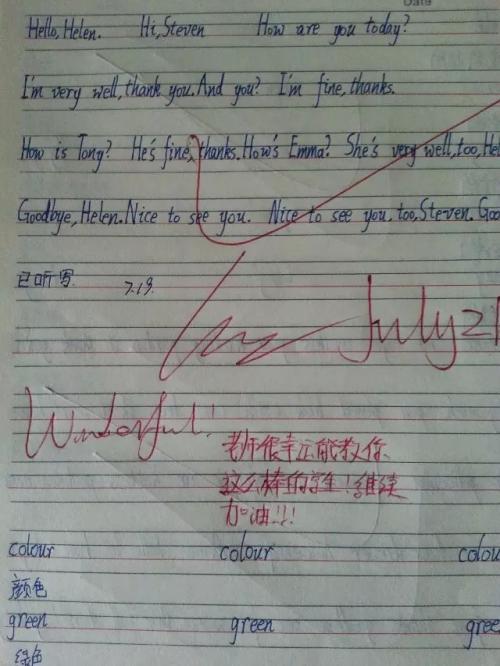 Date
Hello, Helen. Hi, Steven How are you today?
I'm very well, thank you. And you? I'm fine, thanks.
How is Tony? He's fine, thanks. How's Emma? She's very well, too, Hel
Goodbye, Helen. Nice to see you. Nice to see you, too, Steven. Goo
已听写 7.19.
July 21
Wonderful!
老师很幸运能教你
这么棒的学生！继续
加油！！！
colour colour colou
颜色
green green gree
绿色